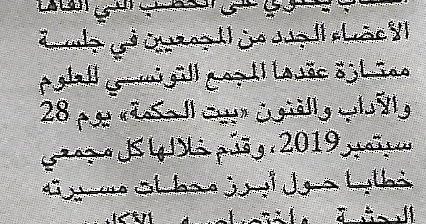 الكتاب يحتوي على الخطب التي ألقاها
الأعضاء الجدد من المجمعيين في جلسة
ممتازة عقدها المجمع التونسي للعلوم
والآداب والفنون «بيت الحكمة» يوم 28
سبتمبر 2019، وقدّم خلالها كل مجمعي
خطابا حول أبرز محطات مسيرته
البحثية واختصاصه